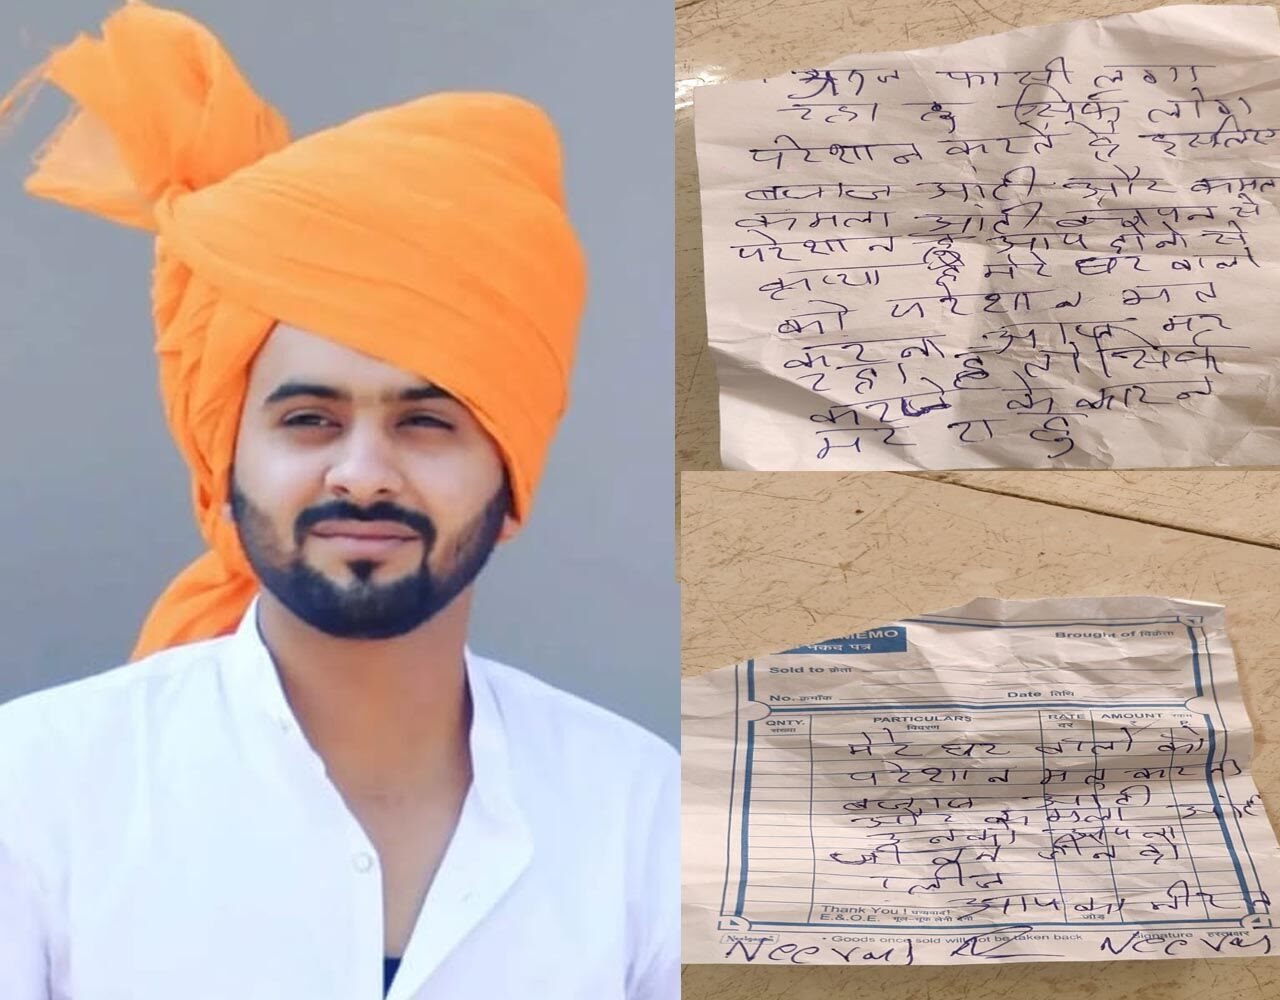 आज फासी लगा
रहा हु सिर्फ लोग
परेशान करते है इसलिए
बजाज आंटी और कमल
कमला आंटी बचपन से
परेशान हु आप दोनो से
मेरे घर वालो
को परेशान मत
करना आज मर
रहा हु तो सिर्फ
के कारन
मर रा हु
MEMO
नकद पत्र
Brought of विक्रेता
Sold to क्रेता
No. क्रमाँक
Date तिथि
QNTY. PARTICULARS RATE AMOUNT
संख्या विवरण दर रकम P.
मेरे घर वालो को
परेशान मत करना
बजाज आंटी
और कमला आंटी
उनको अपना
जीवन जीने दो
प्लीज
आपका नीरज
Thank You ! धन्यवाद!
E.&O.E. भूल-चूक लेनी देनी जोड़
Neelgagan • Goods once sold will not be taken back Signature हस्ताक्षर
Neeraj Neeraj